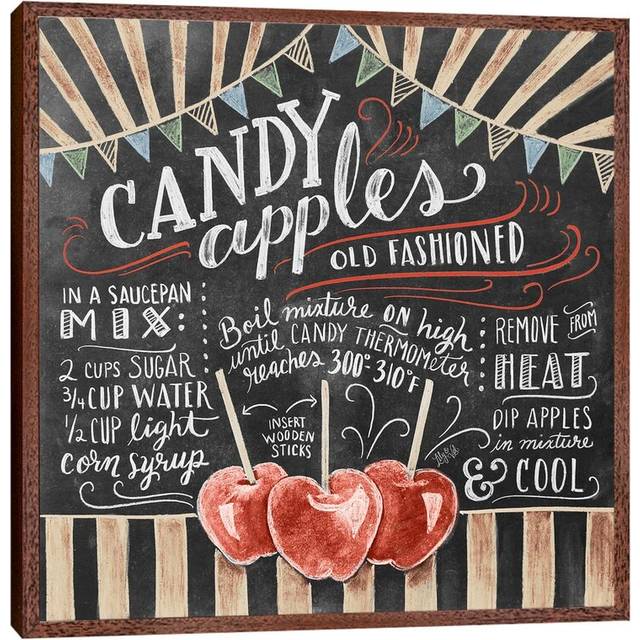 CANDY
apples
OLD FASHIONED
IN A SAUCEPAN
MIX:
2 CUPS SUGAR
3/4 CUP WATER
1/2 CUP light
corn syrup
Boil mixture ON high
until CANDY THERMOMETER
reaches 300°-310°F
INSERT
WOODEN
STICKS
REMOVE FROM
HEAT
DIP APPLES
in mixture
& COOL
Lily & Val